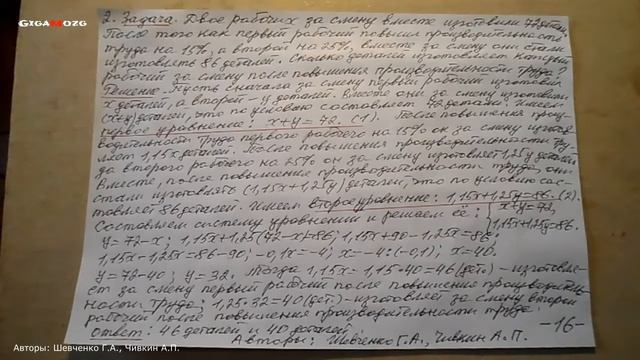 GigaMozg
2. Задача. Двое рабочих за смену вместе изготовили 72 детали.
После того как первый рабочий повысил производительность
труда на 15%, а второй на 25%, вместе за смену они стали
изготовлять 86 деталей. Сколько деталей изготовляет каждый
рабочий за смену после повышения производительности труда?
Решение. Пусть сначала за смену первый рабочий изготовил
x деталей, а второй – y деталей. Вместе они за смену изготовили
(x+y) деталей, это по условию составляет 72 детали. Имеем
первое уравнение: x+y=72. (1). После повышения произ-
водительности труда первого рабочего на 15% он за смену изготов-
ляет 1,15x деталей. После повышения производительности тру-
да второго рабочего на 25% он за смену изготовляет 1,25y деталей.
Вместе, после повышения производительности труда, они
стали изготовлять (1,15x+1,25y) деталей, это по условию сос-
тавляет 86 деталей. Имеем второе уравнение: 1,15x+1,25y=86. (2).
Составляем систему уравнений и решаем её: { x+y=72,
1,15x+1,25y=86.
y=72-x; 1,15x+1,25(72-x)=86; 1,15x+90-1,25x=86;
1,15x-1,25x=86-90; -0,1x=-4; x=-4:(-0,1); x=40.
y=72-40; y=32. Тогда 1,15x=1,15·40=46 (дет.) – изготовля-
ет за смену первый рабочий после повышения производитель-
ности труда; 1,25·32=40 (дет.) – изготовляет за смену второй
рабочий после повышения производительности труда.
Ответ: 46 деталей и 40 деталей.
Авторы: Шевченко Г.А., Чивкин А.П.
-16-
Авторы: Шевченко Г.А., Чивкин А.П.